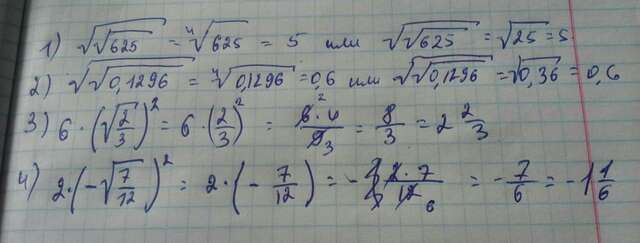 1) √√625 = ⁴√625 = 5 или √√625 = √25 = 5
2) √√0,1296 = ⁴√0,1296 = 0,6 или √√0,1296 = √0,36 = 0,6
3) 6 · (√(2/3))² = 6 · (2/3)² = 6·4/9 = 8/3 = 2 2/3
4) 2 · (-√(7/12))² = 2 · (-7/12) = -2·7/12 = -7/6 = -1 1/6